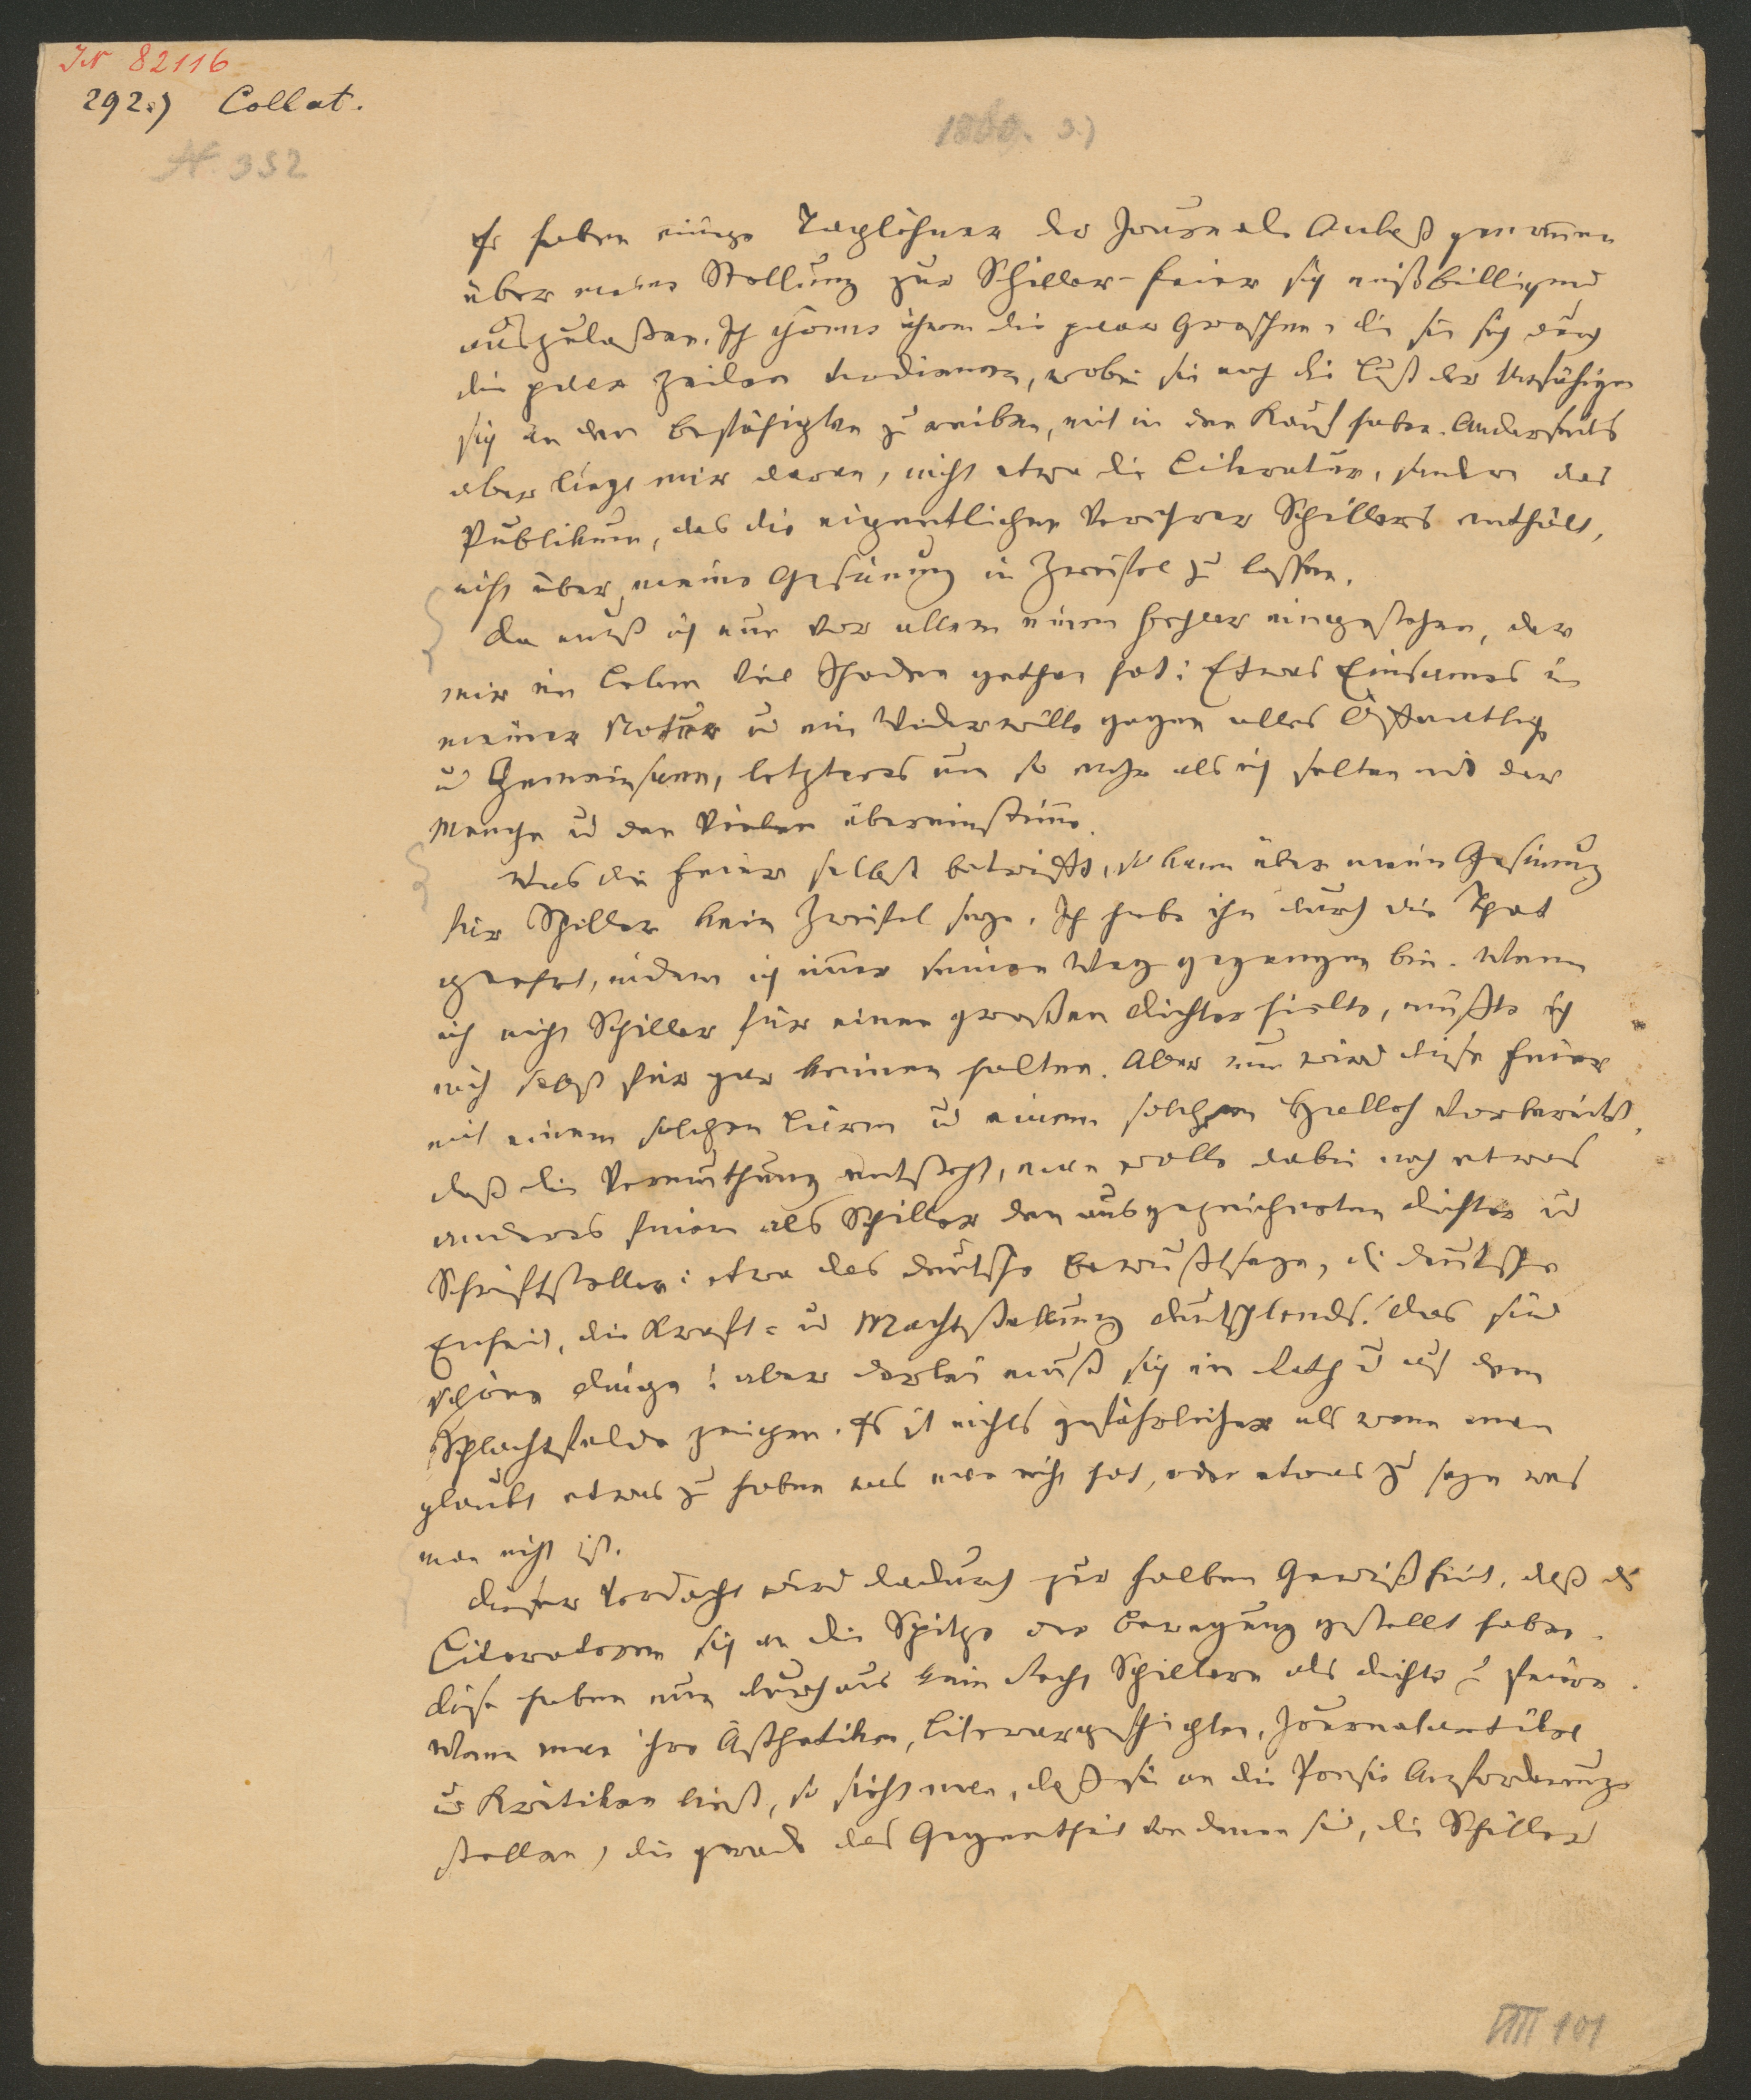 JN 82116
292.) Collat.
N. 352
Es haben einige Taglöhner der Journale Anlaß genommen
über meine Stellung zur Schiller-Feier sich mißbilligend
auszulaßen. Ich gönne ihnen die paar Groschen, die sie sich durch
die paar Zeilen verdienen, wobei sie noch die Lust der Unfähigen
sich an den Befähigten zu reiben, mit in den Kauf haben. Anderseits
aber liegt mir daran, nicht etwa die Literatur, sondern das
Publikum, das die eigentlichen Verehrer Schillers enthält,
nicht über meine Gesinnung in Zweifel zu lassen.
Da muß ich nun vor allem einen Fehler eingestehen, der
mir im Leben viel Schaden gethan hat: Etwas Einsames in
meiner Natur u ein Widerwille gegen alles Öffentliche
u Gemeinsame, letzteres um so mehr als ich selten mit der
Menge u den Vielen übereinstimme.
Was die Feier selbst betrifft, so kann über meine Gesinnung
für Schiller kein Zweifel seyn. Ich habe ihn durch die That
geehrt, indem ich immer seinen Weg gegangen bin. Wenn
ich nicht Schiller für einen großen Dichter hielte, müßte ich
mich selbst für gar keinen halten. Aber nun wird diese Feier
mit einem solchen Lärm u einem solchen Halloh vorbereitet,
daß die Vermuthung entsteht, man wolle dabei noch etwas
anderes feiern als Schiller den ausgezeichneten Dichter u
Schriftsteller: etwa das deutsche Bewußtseyn, die deutsche
Einheit, die Kraft- u Machtstellung Deutschlands. Das sind
schöne Dinge! aber derlei muß sich im Rath u auf dem
Schlachtfelde zeigen. Es ist nichts gefährlicher als wenn man
glaubt etwas zu haben was man nicht hat, oder etwas zu seyn was
man nicht ist.
Dieser Verdacht wird dadurch zur halben Gewißheit, daß die
Literatoren sich an die Spitze der Bewegung gestellt haben.
Diese haben nun durchaus kein Recht Schillern als Dichter zu feiern.
Wenn man ihre Ästhetiken, Literargeschichten, Journalartikel
u Kritiken liest, so sieht man, daß sie an die Poesie Anforderungen
stellen, die gerade das Gegentheil von denen sind, die Schiller
101